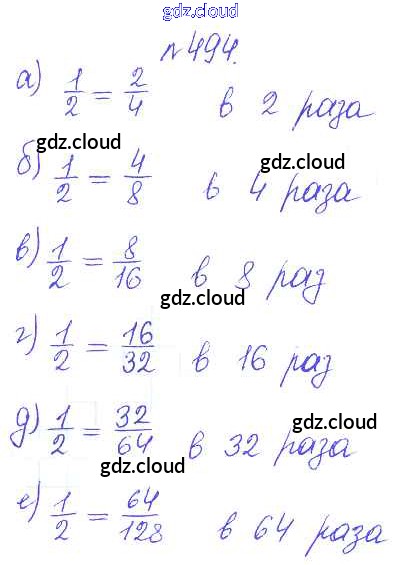 gdz.cloud
№494.
а) 1/2 = 2/4 в 2 раза
gdz.cloud gdz.cloud
б) 1/2 = 4/8 в 4 раза
в) 1/2 = 8/16 в 8 раз
gdz.cloud gdz.cloud
г) 1/2 = 16/32 в 16 раз
д) 1/2 = 32/64 в 32 раза
gdz.cloud gdz.cloud
е) 1/2 = 64/128 в 64 раза
gdz.cloud